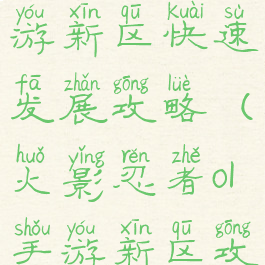 yóu xīn qū kuài sù
游新区快速
fā zhǎn gōng lüè
发展攻略（
huǒ yǐng rěn zhě
火影忍者01
shǒu yóu xīn qū gōng
手游新区攻